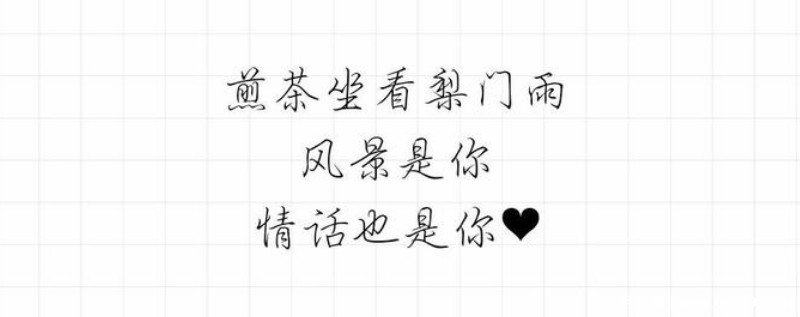 煎茶坐看梨门雨
风景是你
情话也是你♥